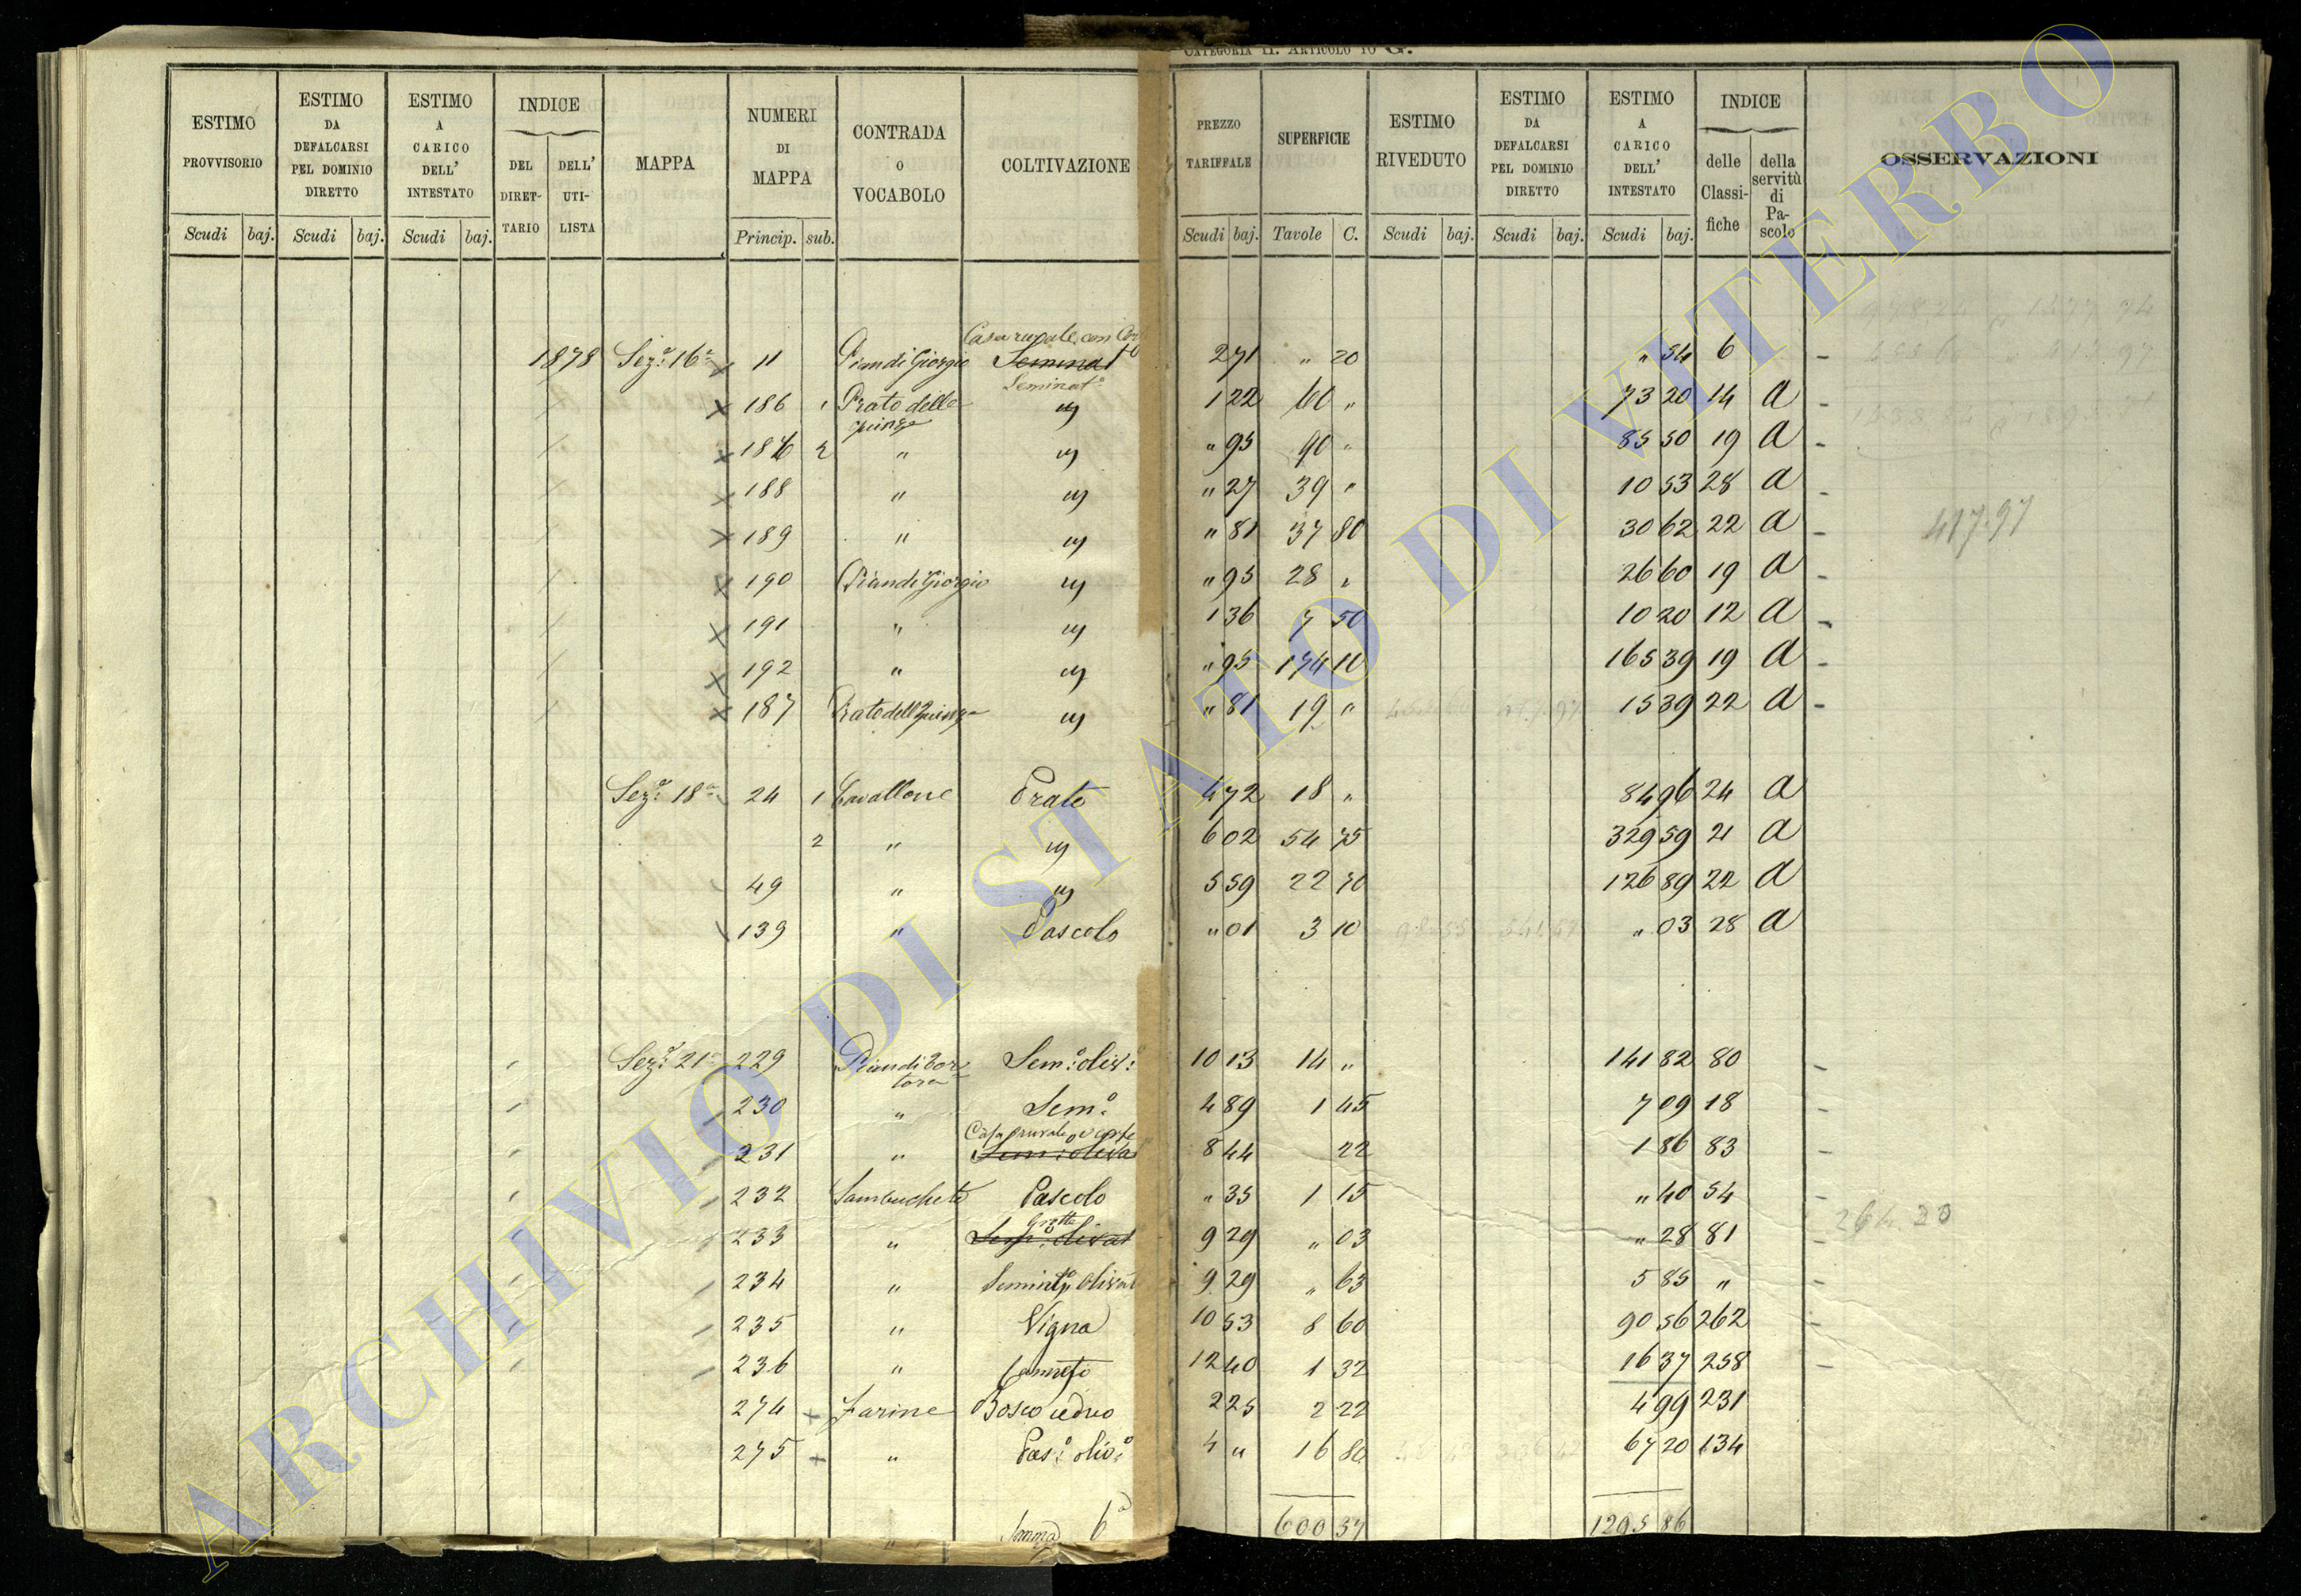 CATEGORIA II. ARTICOLO 10 G.
ESTIMO PROVVISORIO Scudi baj. | ESTIMO DA DEFALCARSI PEL DOMINIO DIRETTO Scudi baj. | ESTIMO A CARICO DELL' INTESTATO Scudi baj. | INDICE DEL DIRETTARIO DELL' UTILISTA | MAPPA | NUMERI DI MAPPA Princip. sub. | CONTRADA o VOCABOLO | COLTIVAZIONE | PREZZO TARIFFALE Scudi baj. | SUPERFICIE Tavole C. | ESTIMO RIVEDUTO Scudi baj. | ESTIMO DA DEFALCARSI PEL DOMINIO DIRETTO Scudi baj. | ESTIMO A CARICO DELL' INTESTATO Scudi baj. | INDICE delle Classifiche della servitù di Pascolo | OSSERVAZIONI
Casa rurale con
1878 Sez.e 16a 11 Pian di Giorgio Seminat 2 71 " 20 " 54 6
Seminat.o
186 1 Prato delle " 1 22 60 " 73 20 14 a
186 2 " " " 95 90 " 85 50 19 a
188 " " " 27 39 " 10 53 28 a
189 " " " 81 37 80 30 62 22 a
417.97
190 Pian di Giorgio " " 95 28 " 26 60 19 a
191 " " 1 36 7 50 10 20 12 a
192 " " " 95 174 10 165 39 19 a
187 " " 81 19 " 15 39 22 a
Sez.e 18a 24 1 Cavallone Prato 4 72 18 " 84 96 24 a
2 " " 6 02 54 75 329 59 21 a
49 " " 5 59 22 70 126 89 22 a
139 " Pascolo " 01 3 10 " 03 28 a
Sez.e 21a 229 Pian di Tortora Sem.o oliv.o 10 13 14 " 141 82 80
230 " Sem.o 4 89 1 45 7 09 18
Casa rurale e corte
231 " Sem.o oliva 8 44 22 1 86 83
232 Sambucheto Pascolo " 35 1 15 " 40 54
264.20
Grotte
233 " Sem.o olivat 9 29 " 03 " 28 81
234 " Seminto olivat 9 29 " 63 5 85 "
235 " Vigna 10 53 8 60 90 56 262
236 " Canneto 12 40 1 32 16 37 258
274 Farine Bosco ceduo 2 25 2 22 4 99 231
275 " Pas.o oliv.o 4 " 16 80 67 20 134
Somma 6a 600 57 1295 86
ARCHIVIO DI STATO DI VITERBO